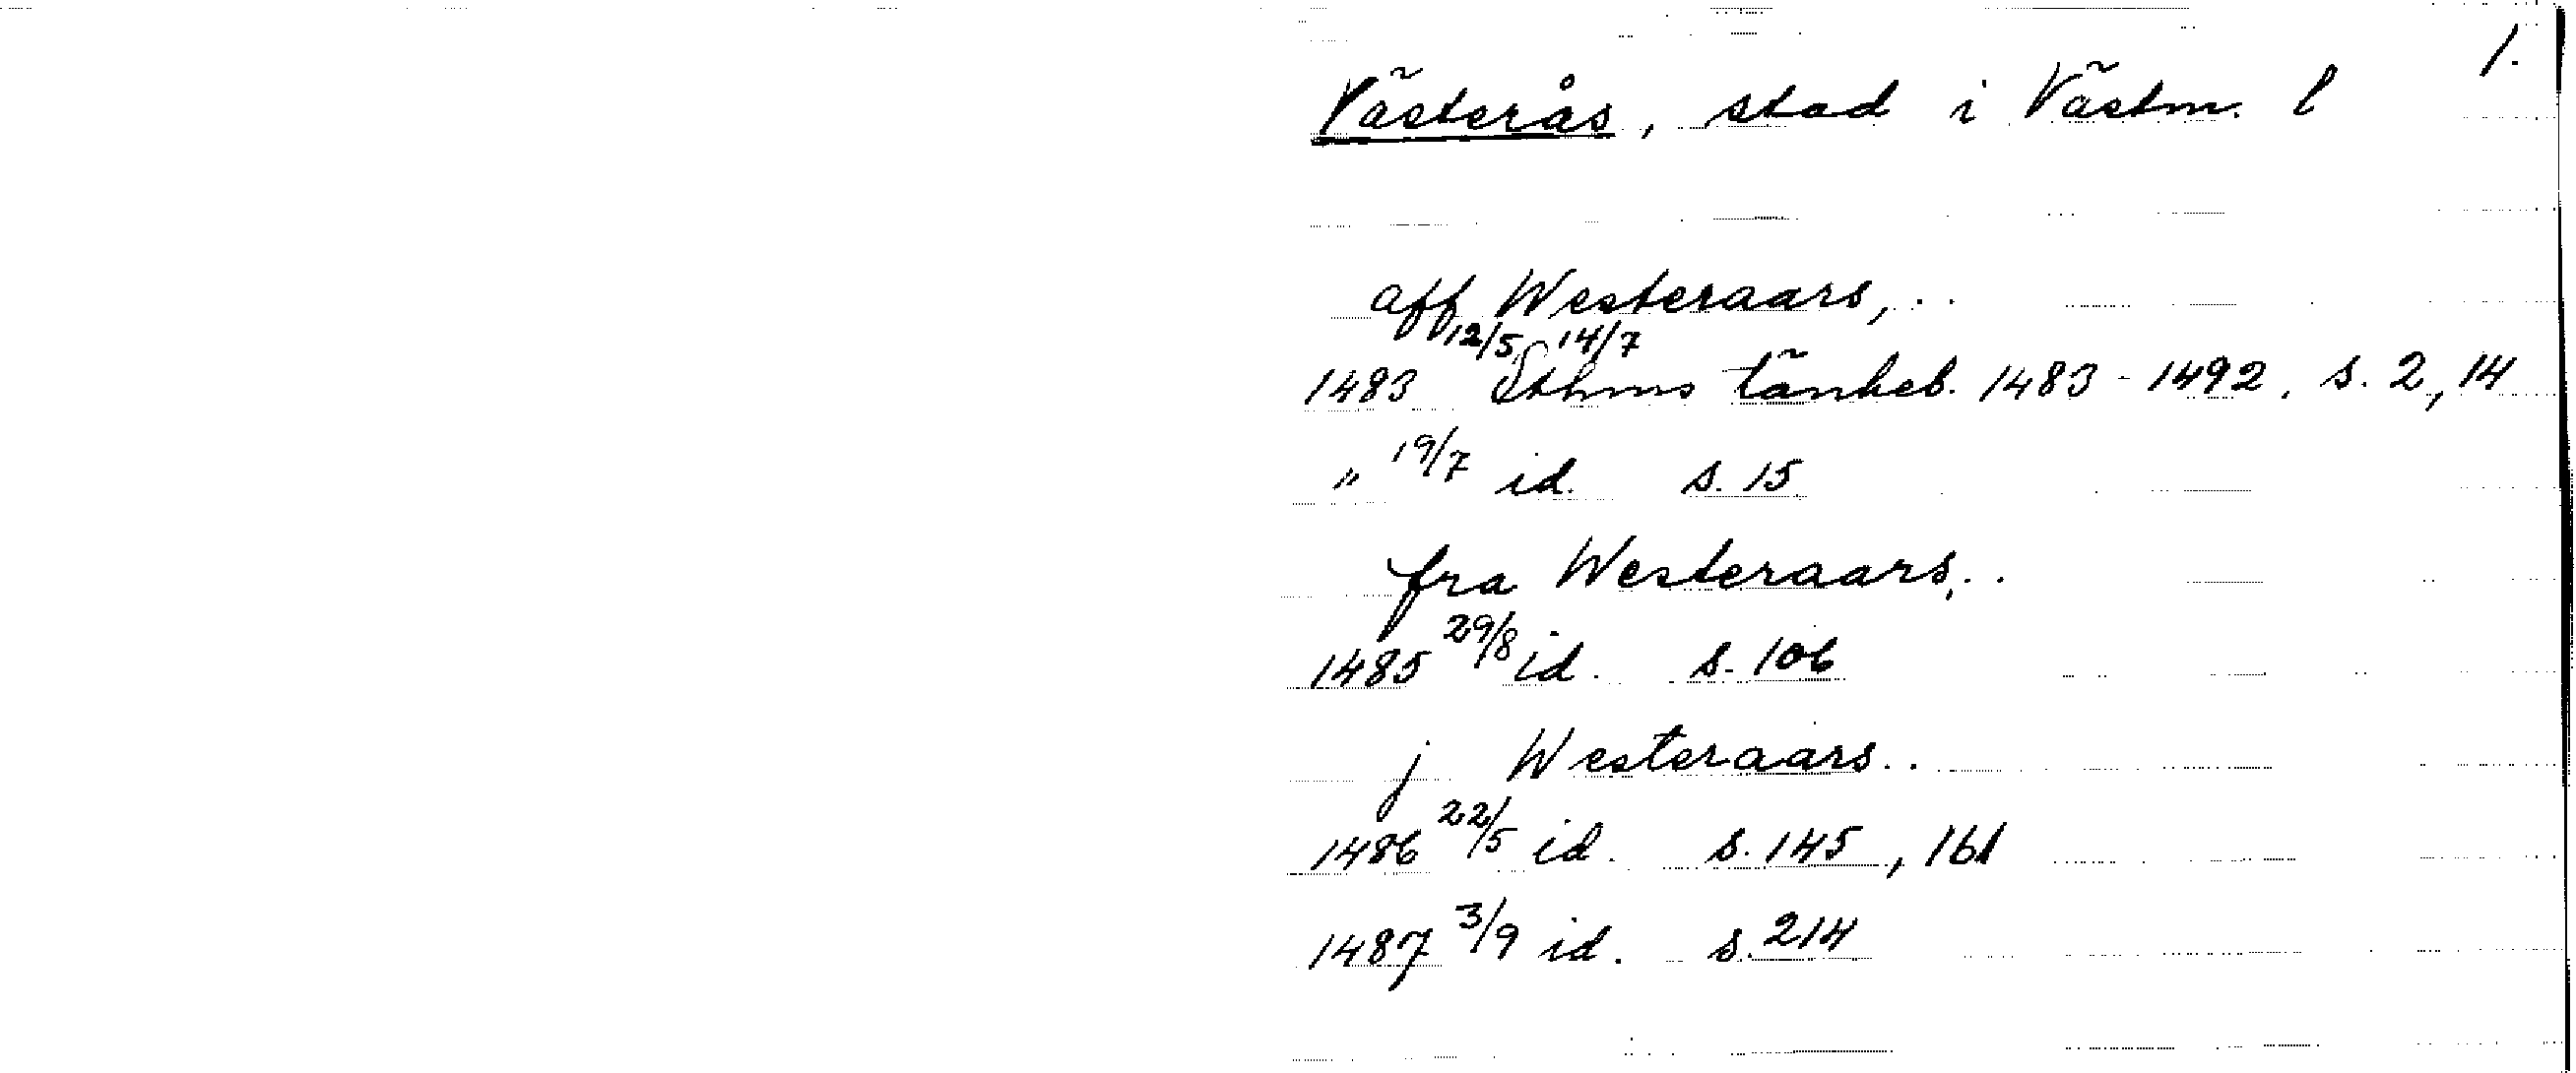 1.
Västerås, stad i Västm. l
aff Westeraars, ..
1483 12/5, 14/7 Sthms tänkeb. 1483 - 1492. s. 2, 14
" 19/7 id. s. 15
fra Westeraars, ..
1485 29/8 id. s. 106
j Westeraars ..
1486 22/5 id. s. 145, 161
1487 3/9 id. s. 214